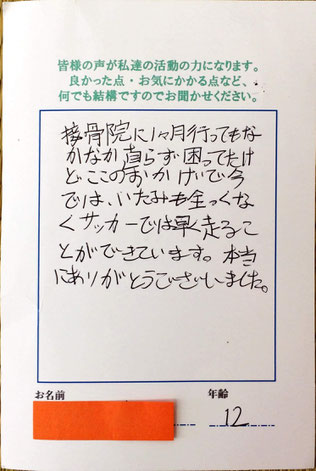 皆様の声が私達の活動の力になります。
良かった点・お気にかかる点など、
何でも結構ですのでお聞かせください。
接骨院に1ヶ月行ってもな
かなか直らず困ってたけ
どここのおかげで今
では、いたみも全っくな
くサッカーでは早く走るこ
とができています。本当
にありがとうございました。
お名前
年齢
12